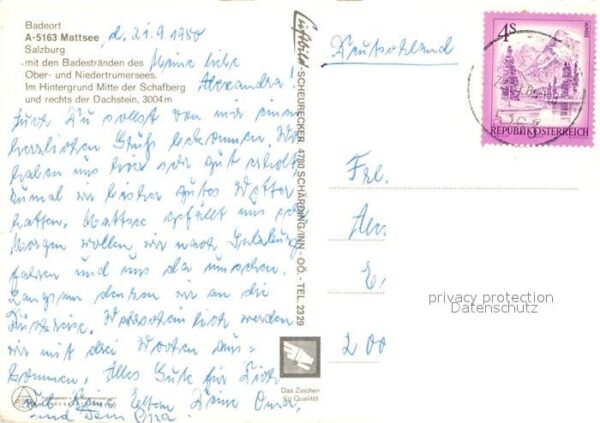 Badeort
A-5163 Mattsee
Salzburg
mit den Badestränden des
Ober- und Niedertrumersees.
Im Hintergrund Mitte der Schafberg
und rechts der Dachstein, 3004 m
d. 21.9.1980
Meine liebe
Alexandra!
Auch Du sollst von mir einen
herzlichen Gruß bekommen. Wir
haben uns hier sehr gut erholt
zumal wir bisher gutes Wetter
hatten. Mattsee gefällt uns sehr
Morgen wollen wir nach Salzburg
fahren und uns da umsehen.
Langsam denken wir an die
Rückreise. Wahrscheinlich werden
wir mit drei Wochen aus-
kommen. Alles Gute für Dich
und Deine Eltern Deine Oma,
und Dein Opa.
Luftbild SCHEURECKER 4780 SCHÄRDING/INN - OÖ. - TEL. 2329
Das Zeichen
für Qualität
Deutschland
4S
REPUBLIK ÖSTERREICH
Frl.
A
E
2 00
privacy protection
Datenschutz